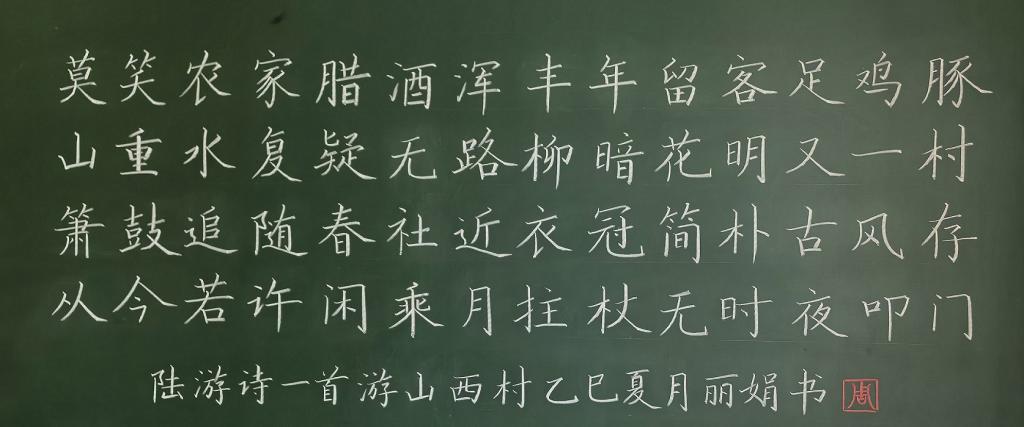 莫笑农家腊酒浑丰年留客足鸡豚
山重水复疑无路柳暗花明又一村
箫鼓追随春社近衣冠简朴古风存
从今若许闲乘月拄杖无时夜叩门
陆游诗一首游山西村乙巳夏月丽娟书 周